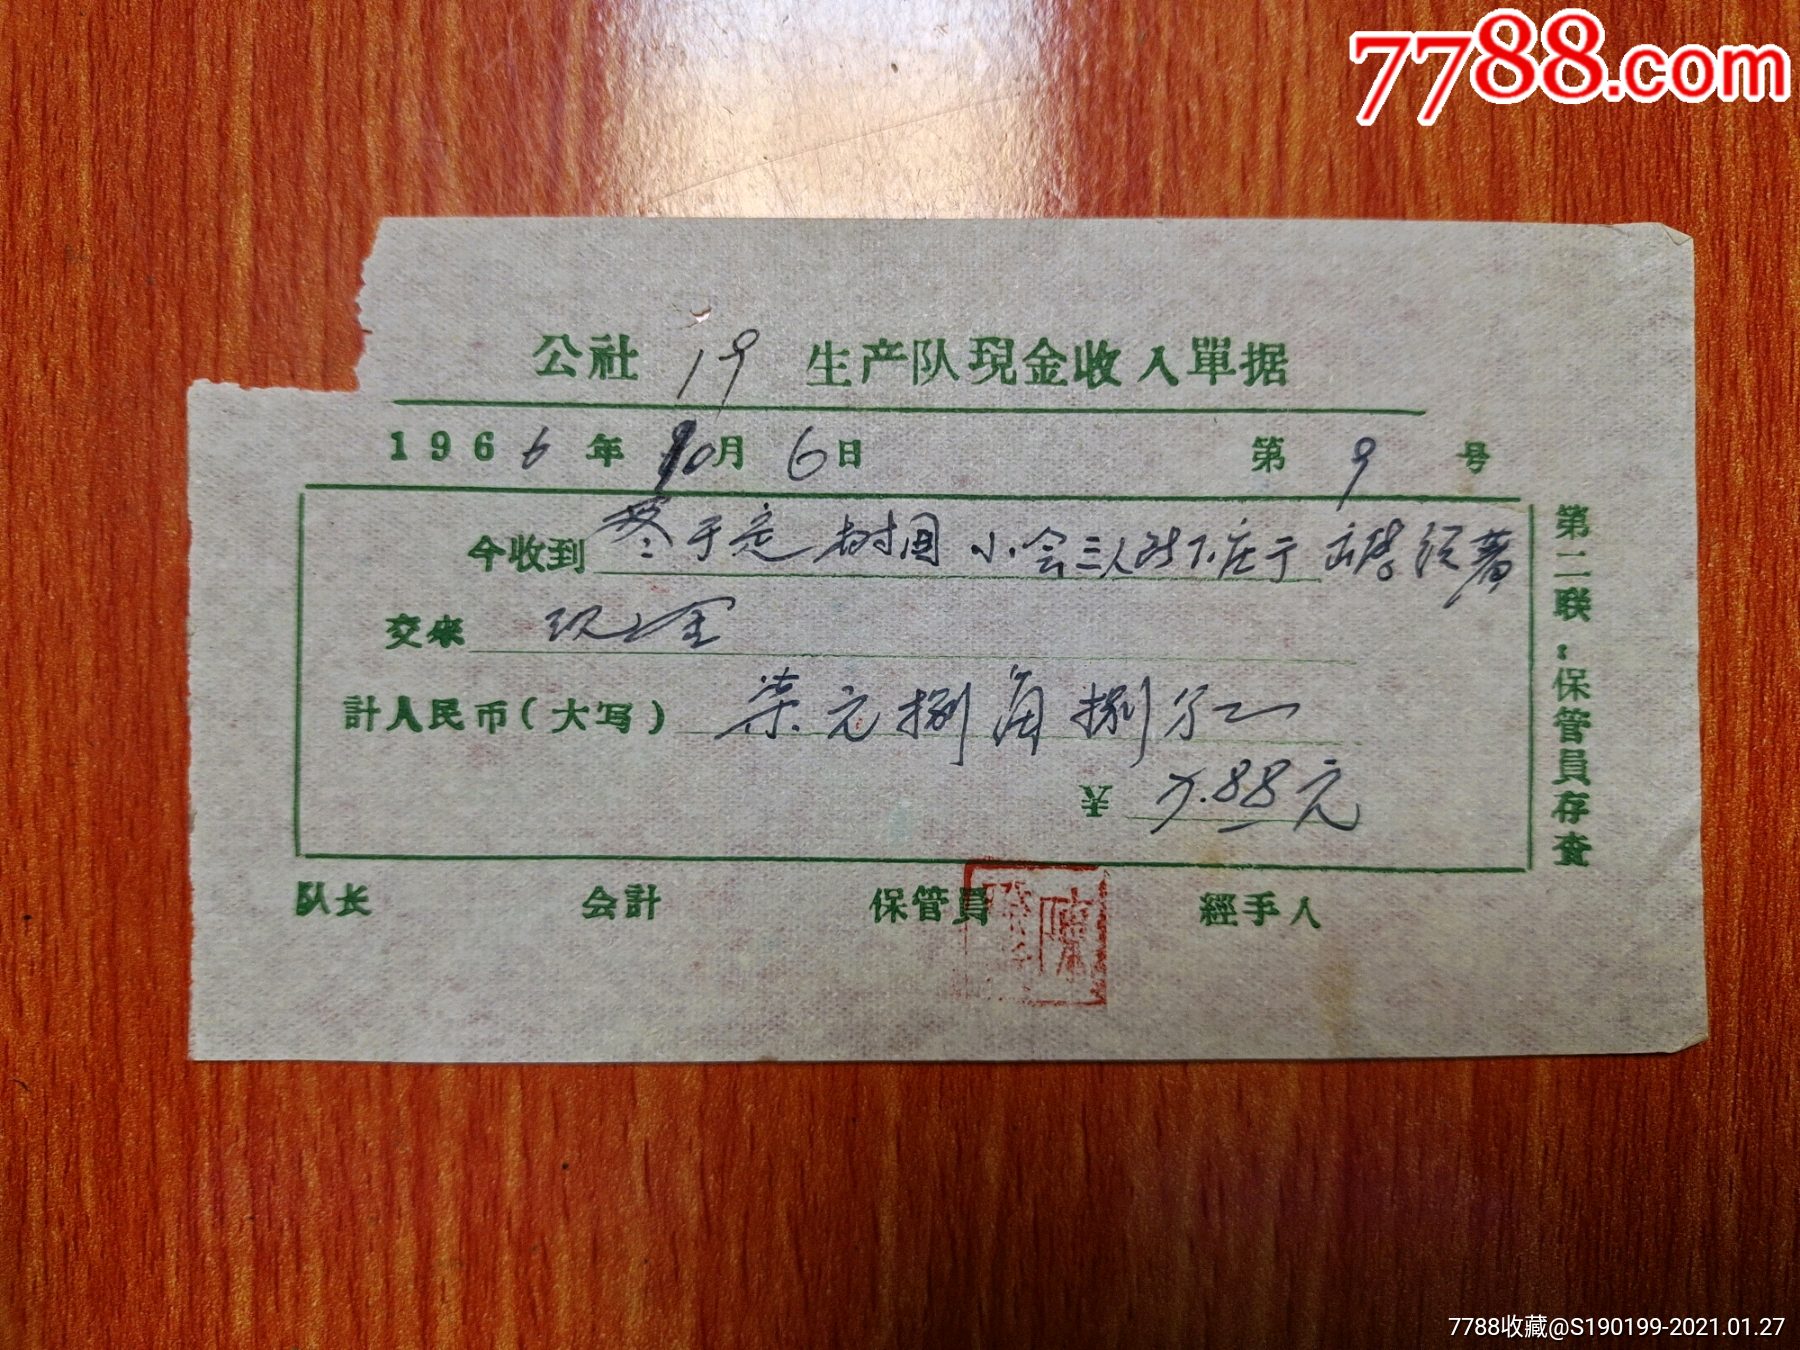 7788.com
公社 19 生产队現金收入單据
1966年10月6日 第9号
今收到 树 小会三人 下庄于
交来 现金
計人民币(大写) 柒元捌角捌分
¥ 7.88元
第二联:保管員存查
队长 会計 保管員 經手人
陳
7788收藏@S190199-2021.01.27